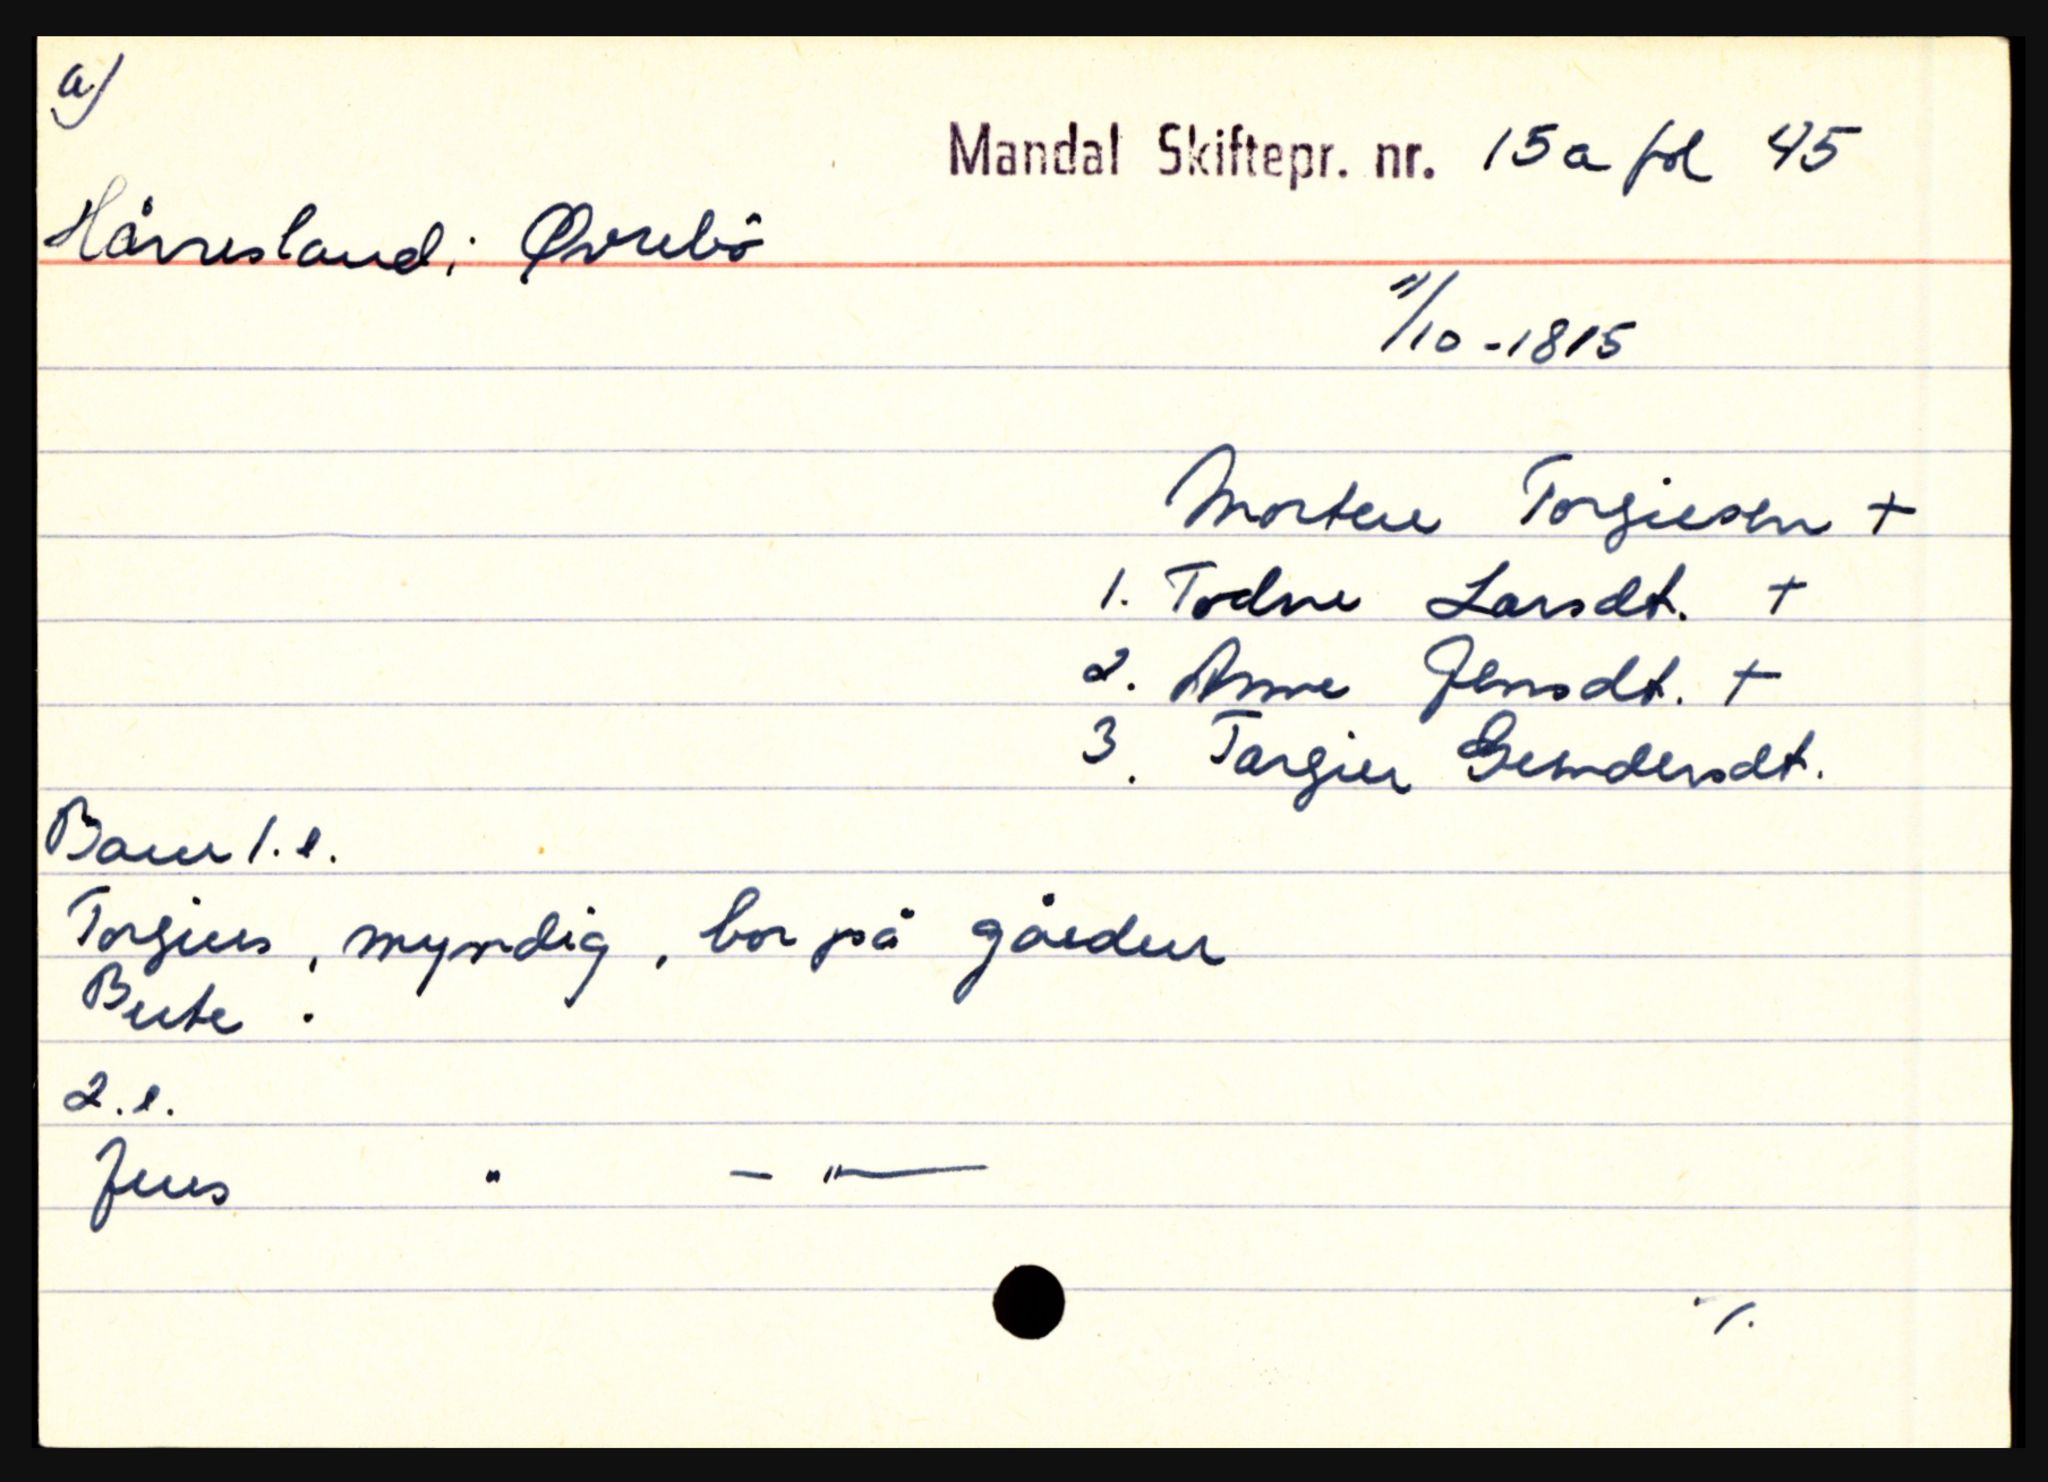 a)
Mandal Skiftepr. nr. 15a fol 45
Håvresland i Øvrebø
11/10 - 1815
Morten Torgiesen +
1. Todne Larsdt. +
2. Anne Jensdt. +
3. Targier
Barn 1. e.
Torgius, myndig, bor på gården
Berte .
2. e.
Jens " — " —
./.